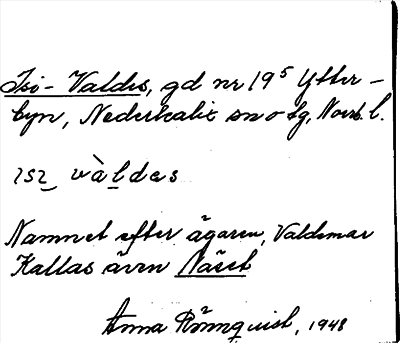 Isó-Valdes, gd nr 19⁵ Ytter-
byn, Nederkalix sn o tg, Norrb. l.
ɪsɪ wàldes
Namnet efter ägaren, Valdemar
Kallas även Näset
Anna Rönnquist, 1948